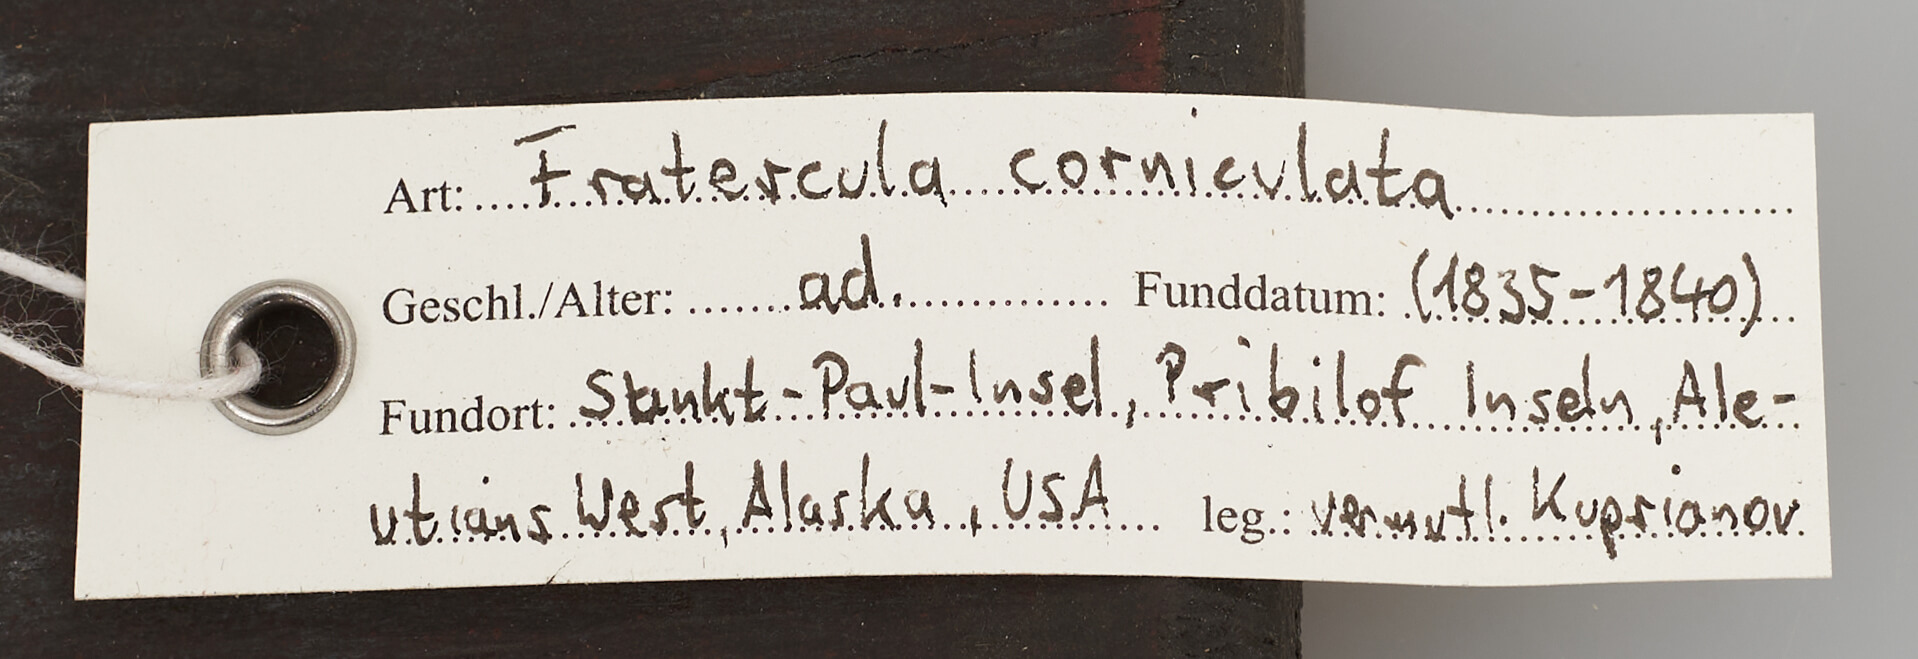 Art: Fratercula corniculata
Geschl./Alter: ad. Funddatum: (1835-1840)
Fundort: Sankt-Paul-Insel, Pribilof Inseln, Ale-
utians West, Alaska, USA leg.: vermutl. Kuprianov